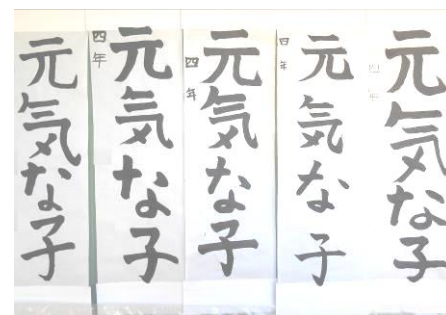 元気な子
四年
元気な子
四年
元気な子
四年
元気な子
四年
元気な子